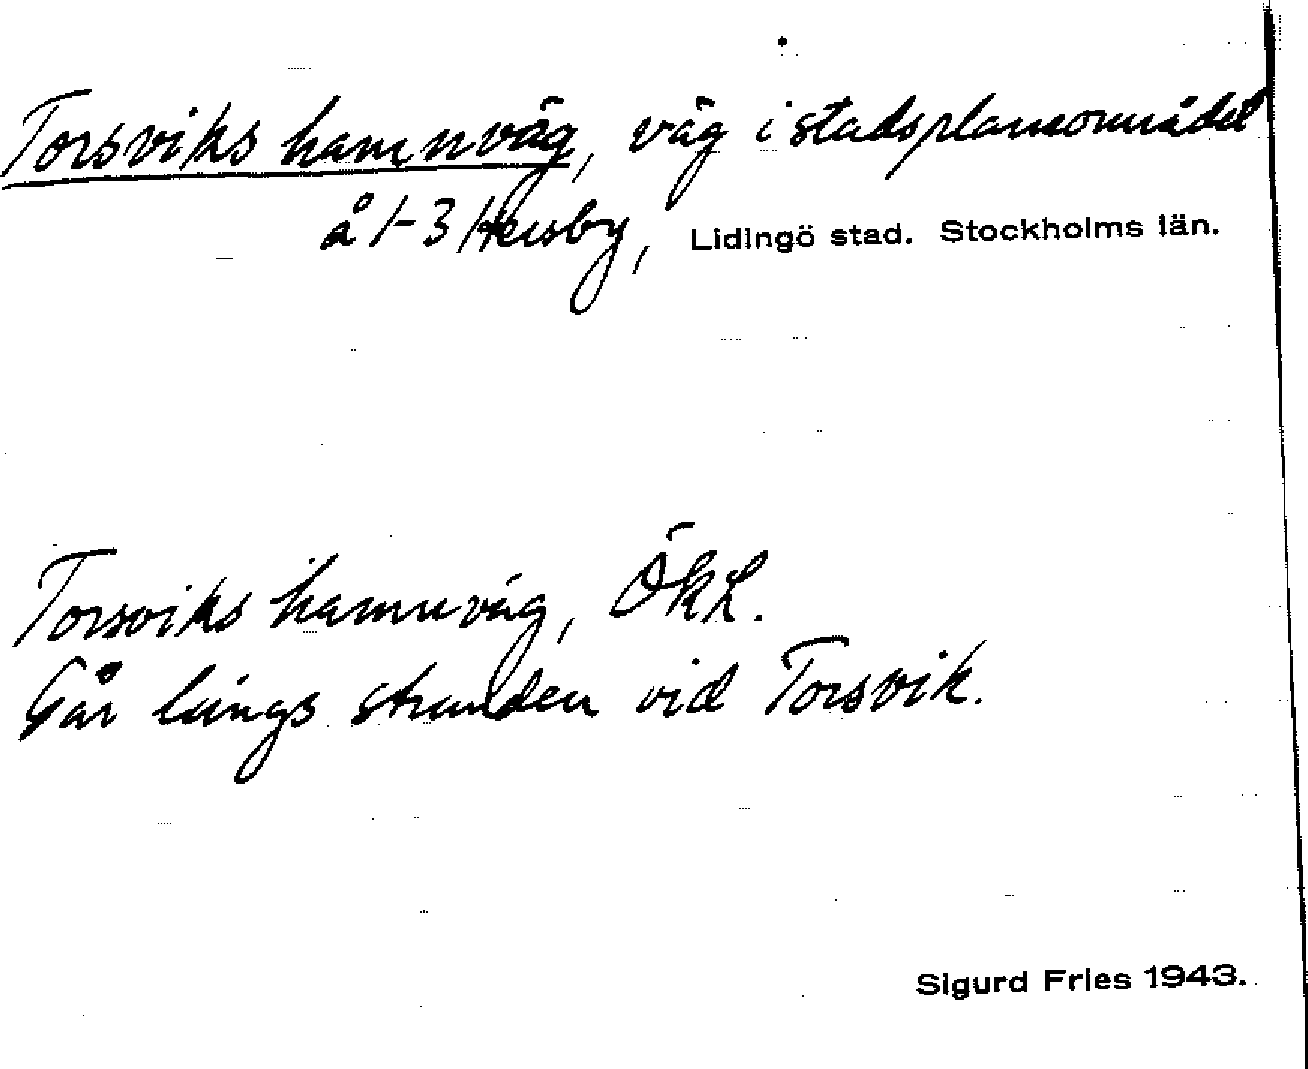 Torsviks hamnväg, väg i stadsplaneområdet
å 1-3 Hersby, Lidingö stad. Stockholms län.
Torsviks hamnväg, ÖkL.
Går längs stranden vid Torsvik.
Sigurd Fries 1943.